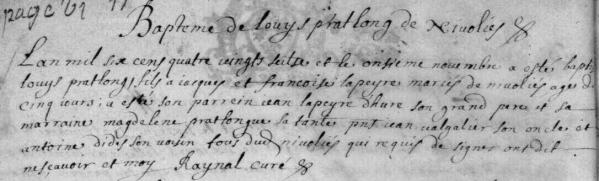 page 61
Bapteme de louys pratlong de Nivolies
Lan mil six cens quatre vingts seitse et le onsieme novembre a esté bapt
louys pratlong fils a iacques et francoise lapeyre mariés de nivolies agé d
cinq iours; a esté son parrein iean lapeyre dhure son grand pere et sa
marraine magdelene pratlongue sa tante pnts iean valgalier son oncle et
antoine dides son voisin tous dud nivolies qui requis de signer ont dit
ne scavoir et moy Raynal curé